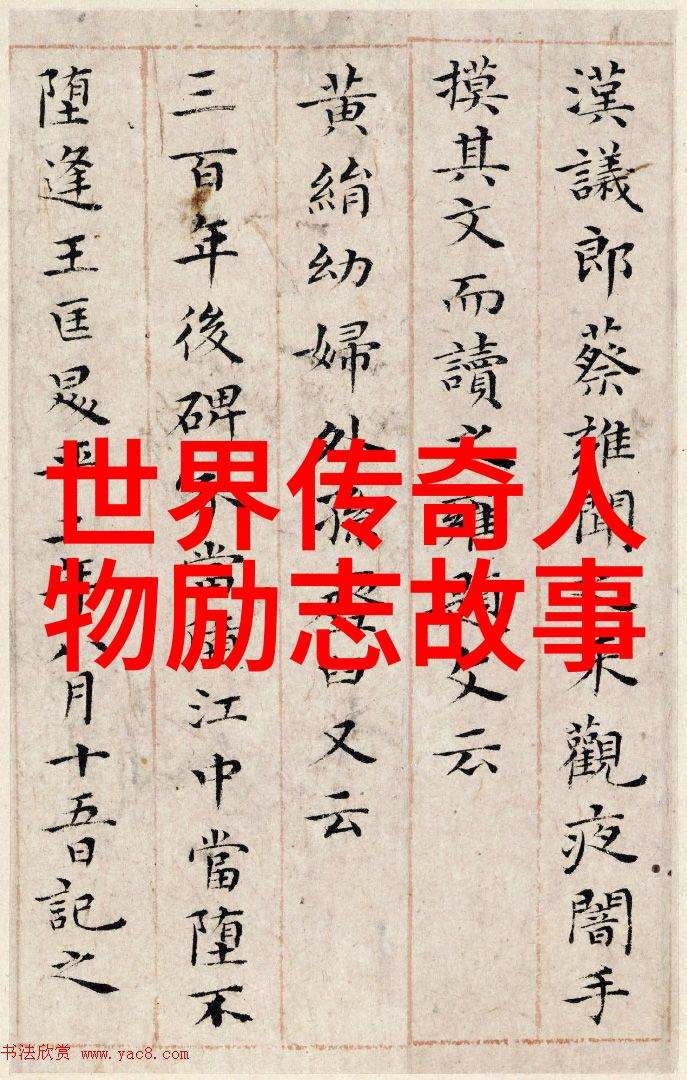 漢議郎蔡雍聞之來觀夜闇手
摸其文而讀之雍題文云
黃絹幼婦外孫臼又云
三百年後碑當江中當堕不
堕逢王匡昇平二年八月十五日記之
世界传奇人
物励志故事
书法欣赏 www.yac8.com